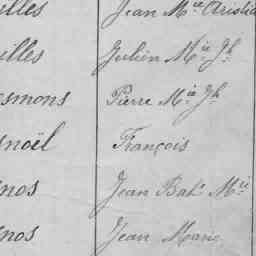 illes Jean Mie Aristid
illes Julien Mie Jh
smons Pierre Mie Jh
snoël François
nos Jean Bate Mie
nos Jean Marie